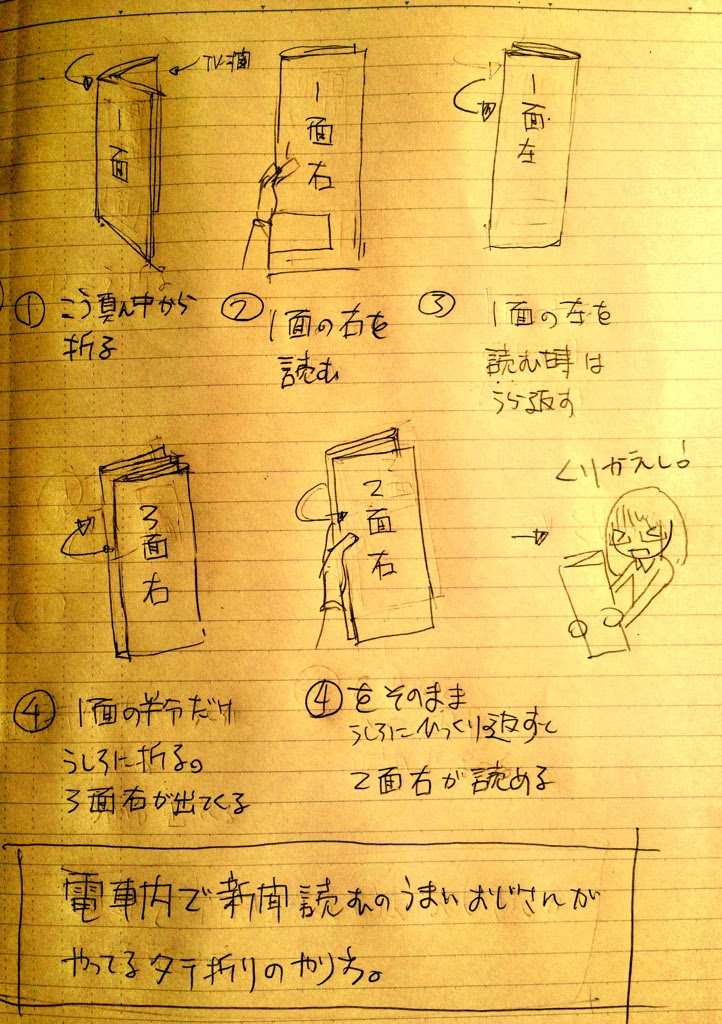 TV面
1面
1面右
1面左
① こう真ん中から
折る
② 1面の右を
読む
③ 1面の左を
読む時は
うら返す
3面右
2面右
くりかえし!
④ 1面の半分だけ
うしろに折る。
3面右が出てくる
④をそのまま
うしろにひっくり返すと
2面右が読める
電車内で新聞読むのうまいおじさんが
やってるタテ折りのやり方。